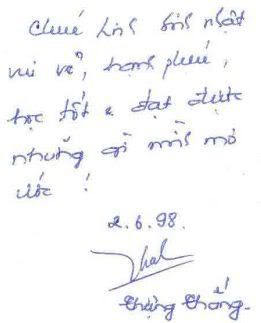 Chúc Linh sinh nhật
vui vẻ, hạnh phúc,
học tốt & đạt được
những gì mình mơ
ước !
2.6.98.
thắng.